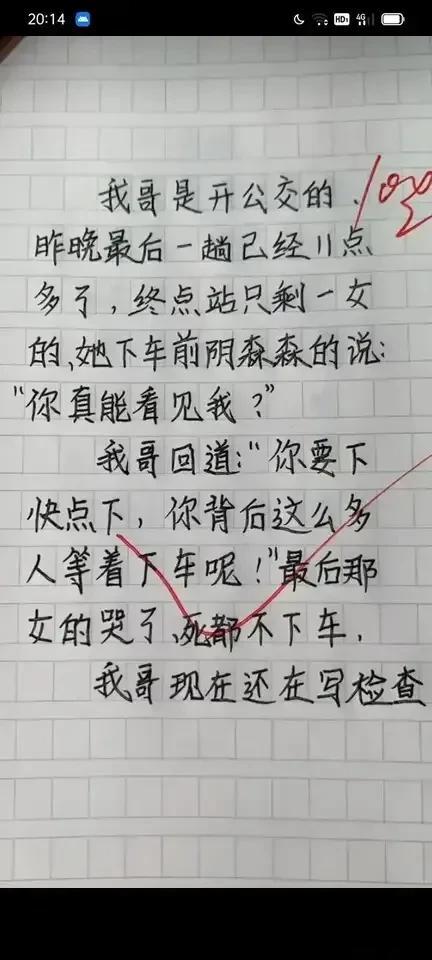 20:14
HD1
4G
100
我哥是开公交的、
昨晚最后一趟已经11点
多了，终点站只剩一女
的、她下车前阴森森的说：
“你真能看见我？”
我哥回道：“你要下
快点下，你背后这么多
人等着下车呢！”最后那
女的哭了、死都不下车，
我哥现在还在写检查